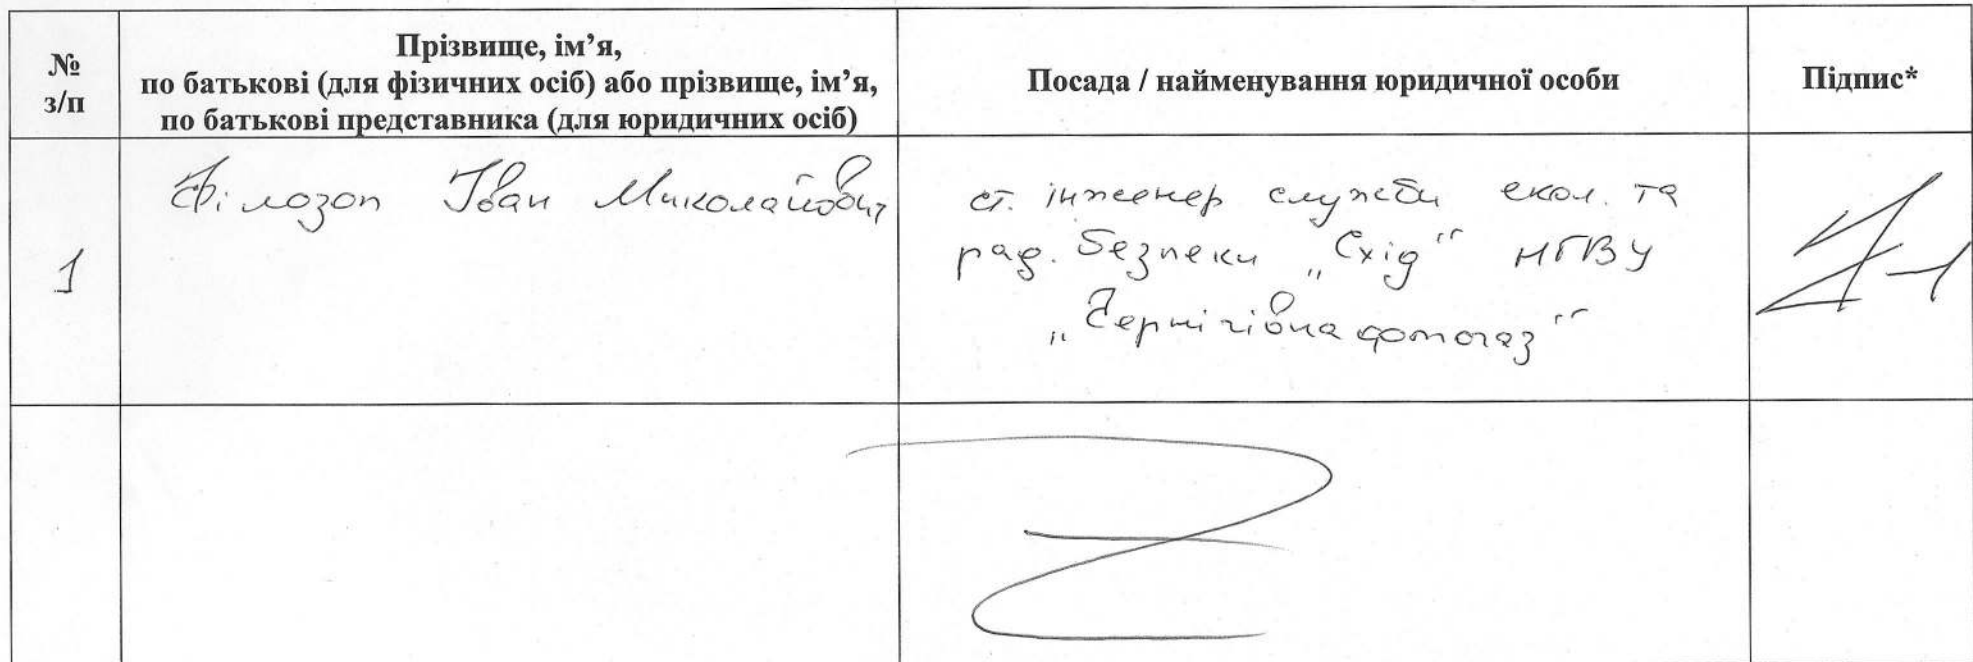 № з/п
Прізвище, ім’я,
по батькові (для фізичних осіб) або прізвище, ім’я,
по батькові представника (для юридичних осіб)
Посада / найменування юридичної особи
Підпис*
1
Філозоп Іван Миколайович
ст. інженер служби екол. та
рад. безпеки „Схід“ НГВУ
„Чернігівнафтогаз“